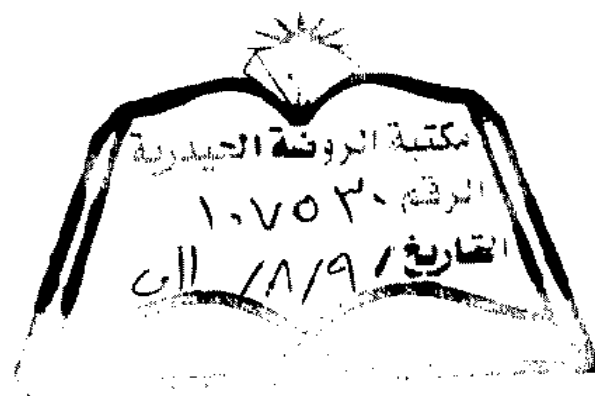 مكتبة الروضة الحيدرية
الرقم ١٠٧٥٣٠
التاريخ / ٨/٩/